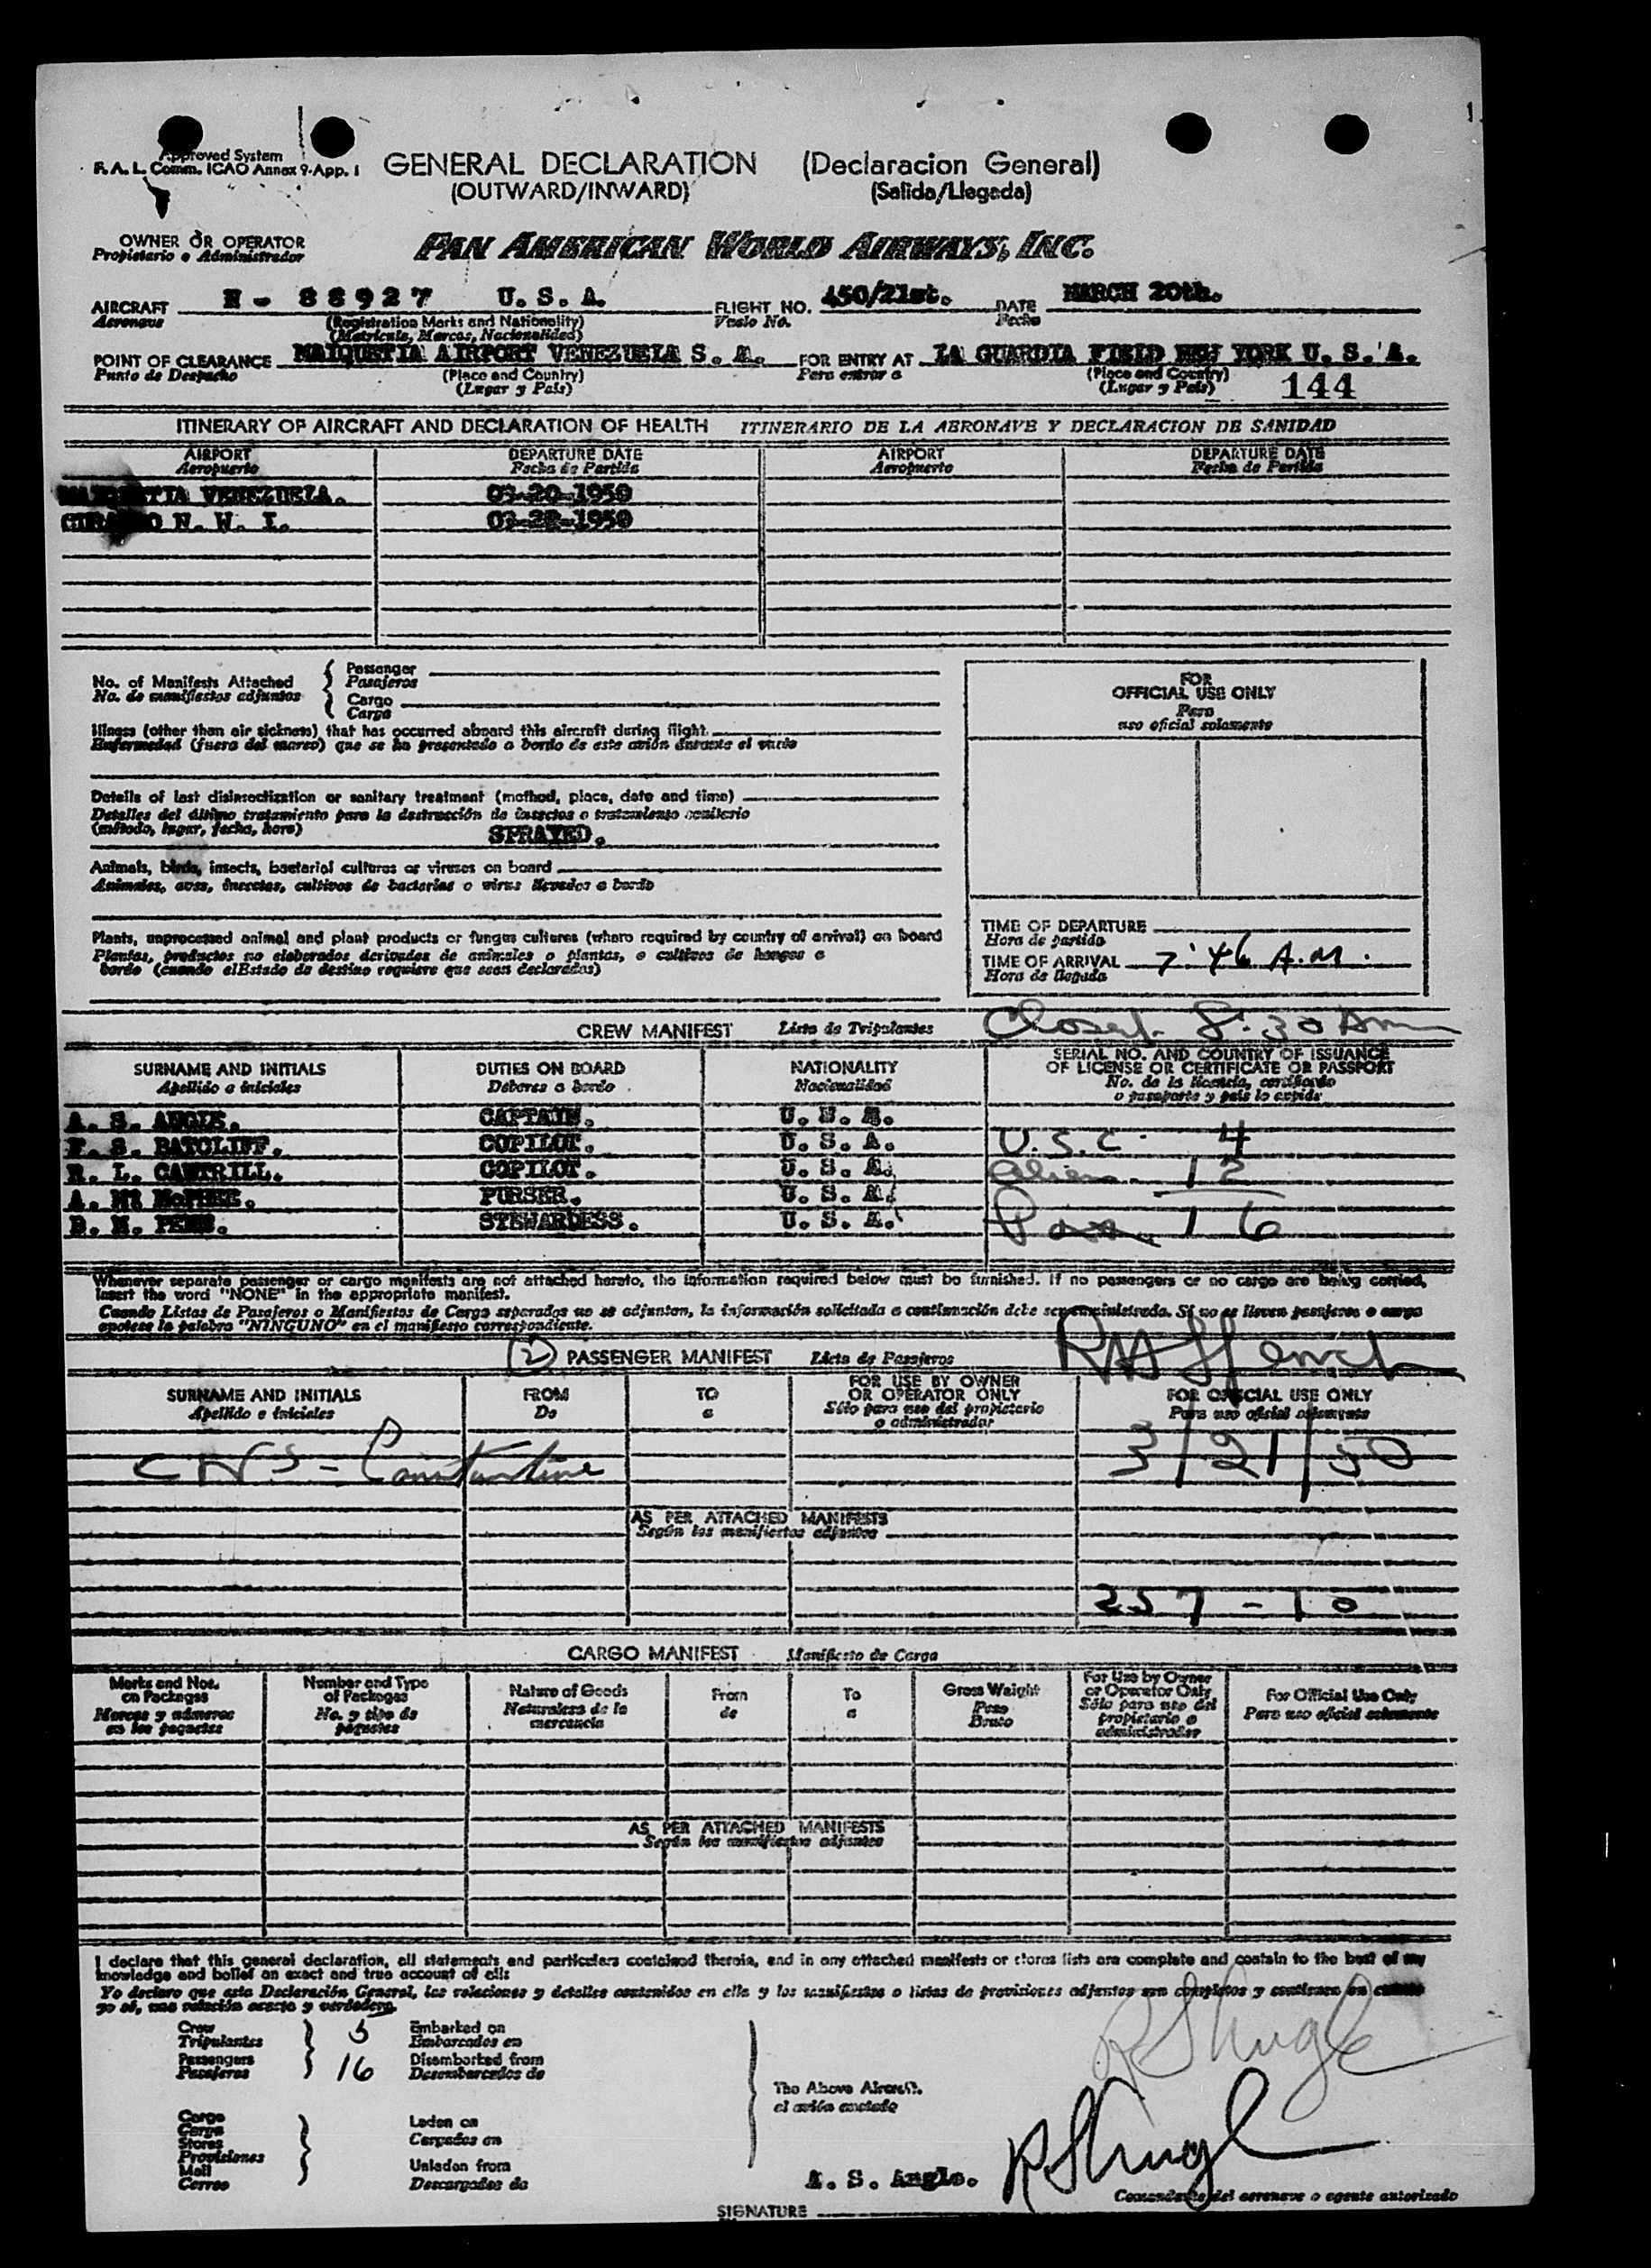 Approved System
F. A. L. Comm. ICAO Annex 9-App. 1
GENERAL DECLARATION (Declaracion General)
(OUTWARD/INWARD) (Salida/Llegada)
OWNER OR OPERATOR
Propietario o Administrador
PAN AMERICAN WORLD AIRWAYS, INC.
AIRCRAFT N - 88927 U. S. A. FLIGHT NO. 450/21st. DATE MARCH 20th.
Aeronave (Registration Marks and Nationality) Vuelo No. Fecha
(Matricula, Marcas, Nacionalidad)
POINT OF CLEARANCE MAIQUETIA AIRPORT VENEZUELA S. A. FOR ENTRY AT LA GUARDIA FIELD NEW YORK U. S. A.
Punto de Despacho (Place and Country) Para entrar a (Place and Country)
(Lugar y País) (Lugar y País) 144
ITINERARY OF AIRCRAFT AND DECLARATION OF HEALTH ITINERARIO DE LA AERONAVE Y DECLARACION DE SANIDAD
AIRPORT DEPARTURE DATE AIRPORT DEPARTURE DATE
Aeropuerto Fecha de Partida Aeropuerto Fecha de Partida
MAIQUETIA VENEZUELA. 03-20-1950
N. W. I. 03-20-1950
No. of Manifests Attached
No. de manifiestos adjuntos
Passenger
Pasajeros
Cargo
Carga
Illness (other than air sickness) that has occurred aboard this aircraft during flight
Enfermedad (fuera del mareo) que se ha presentado a bordo de este avión durante el vuelo
Details of last disinsectization or sanitary treatment (method, place, date and time)
Detalles del último tratamiento para la destrucción de insectos o tratamiento sanitario
(método, lugar, fecha, hora) SPRAYED.
Animals, birds, insects, bacterial cultures or viruses on board
Animales, aves, insectos, cultivos de bacterias o virus llevados a bordo
Plants, unprocessed animal and plant products or fungus cultures (where required by country of arrival) on board
Plantas, productos no elaborados derivados de animales o plantas, o cultivos de hongos a
bordo (cuando el Estado de destino requiere que sean declarados)
FOR
OFFICIAL USE ONLY
Para
uso oficial solamente
TIME OF DEPARTURE
Hora de partida
TIME OF ARRIVAL 7:46 A.M.
Hora de llegada
Closed. 8:30 Am
CREW MANIFEST Lista de Tripulantes
SURNAME AND INITIALS DUTIES ON BOARD NATIONALITY SERIAL NO. AND COUNTRY OF ISSUANCE
OF LICENSE OR CERTIFICATE OR PASSPORT
Apellido e iniciales Deberes a bordo Nacionalidad No. de la licencia, certificado
o pasaporte y país lo expide
A. S. ANGLE. CAPTAIN. U. S. A.
F. S. RATCLIFF. COPILOT. U. S. A. U.S.C. 4
R. L. CANTRILL. COPILOT. U. S. A. Aliens. 12
PURSER. U. S. A.
STEWARDESS. U. S. A. Pax. 16
Whenever separate passenger or cargo manifests are not attached hereto, the information required below must be furnished. If no passengers or no cargo are being carried,
insert the word "NONE" in the appropriate manifest.
Cuando Listas de Pasajeros o Manifiestos de Carga separados no se adjuntan, la información solicitada a continuación debe ser suministrada. Si no se llevan pasajeros o carga
anótese la palabra "NINGUNO" en el manifiesto correspondiente.
(2) PASSENGER MANIFEST Lista de Pasajeros
SURNAME AND INITIALS FROM TO FOR USE BY OWNER
OR OPERATOR ONLY FOR OFFICIAL USE ONLY
Apellido e iniciales De a Sólo para uso del propietario
o administrador Para uso oficial solamente
Constantine 3/21/50
AS PER ATTACHED MANIFESTS
Según los manifiestos adjuntos
257-10
CARGO MANIFEST Manifiesto de Carga
Marks and Nos.
on Packages
Marcas y números
en los paquetes
Number and Type
of Packages
No. y tipo de
paquetes
Nature of Goods
Naturaleza de la
mercancía
From
de
To
a
Gross Weight
Peso
Bruto
For Use by Owner
or Operator Only
Sólo para uso del
propietario o
administrador
For Official Use Only
Para uso oficial solamente
AS PER ATTACHED MANIFESTS
Según los manifiestos adjuntos
I declare that this general declaration, all statements and particulars contained therein, and in any attached manifests or stores lists are complete and contain to the best of my
knowledge and belief an exact and true account of all:
Yo declaro que esta Declaración General, las relaciones y detalles contenidos en ella y los manifiestos o listas de provisiones adjuntos son completos y contienen en cuanto
yo sé, una relación exacta y verdadera.
Crew 5 Embarked on
Tripulantes Embarcados en
Passengers 16 Disembarked from
Pasajeros Desembarcados de
The Above Aircraft.
el avión anotado
Cargo
Carga
Stores
Provisiones
Mail
Correo
Laden on
Cargados en
Unladen from
Descargados de
A. S. Angle.
SIGNATURE
Comandante del aeronave o agente autorizado